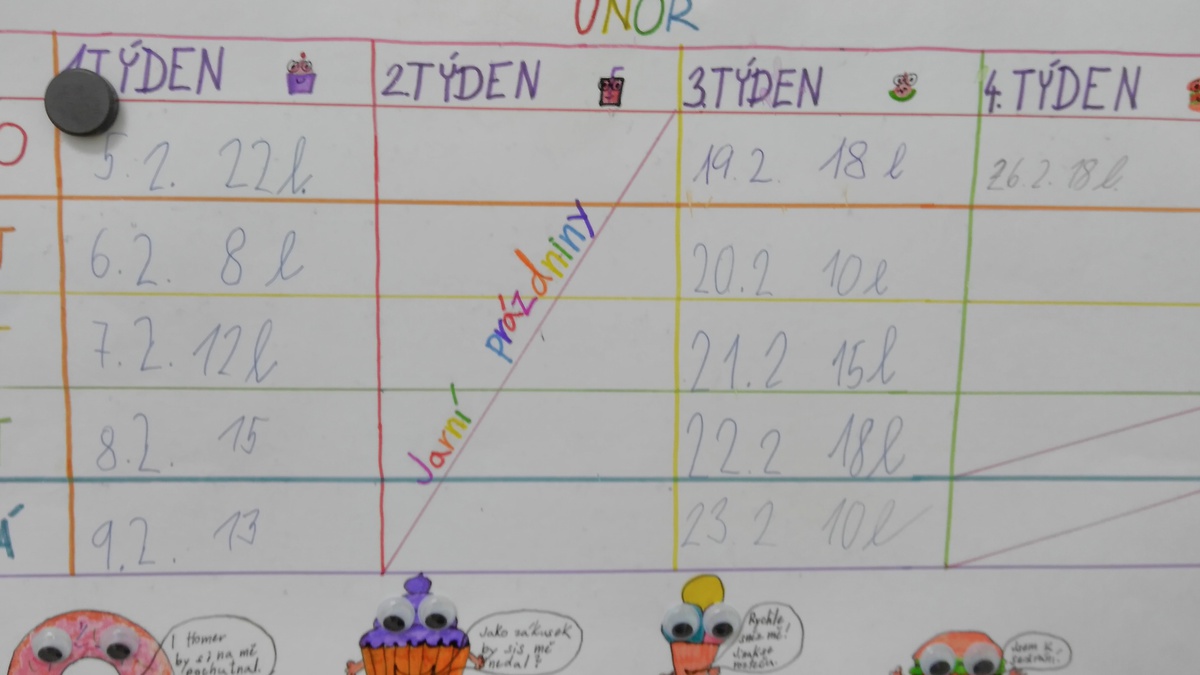 ÚNOR
1TÝDEN 2TÝDEN 3.TÝDEN 4.TÝDEN
O 5.2. 22l. 19.2. 18 l 26.2. 18l.
6.2. 8 l 20.2 10l
7.2. 12l 21.2 15l
8.2. 15 22.2 18l
Á 9.2. 13 23 2 10l
Jarní prázdniny
I Homer
by si na mě
pochutnal.
Jako zákusek
by sis mě
nedal?
Rychle
sněz mě!